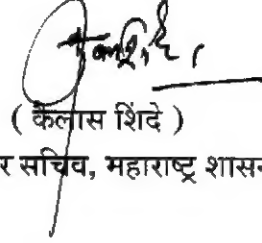 ( कैलास शिंदे )
र सचिव, महाराष्ट्र शासन